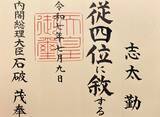 志太 勤
従四位に叙する
令和七年七月九日
内閣総理大臣 石破 茂 奉